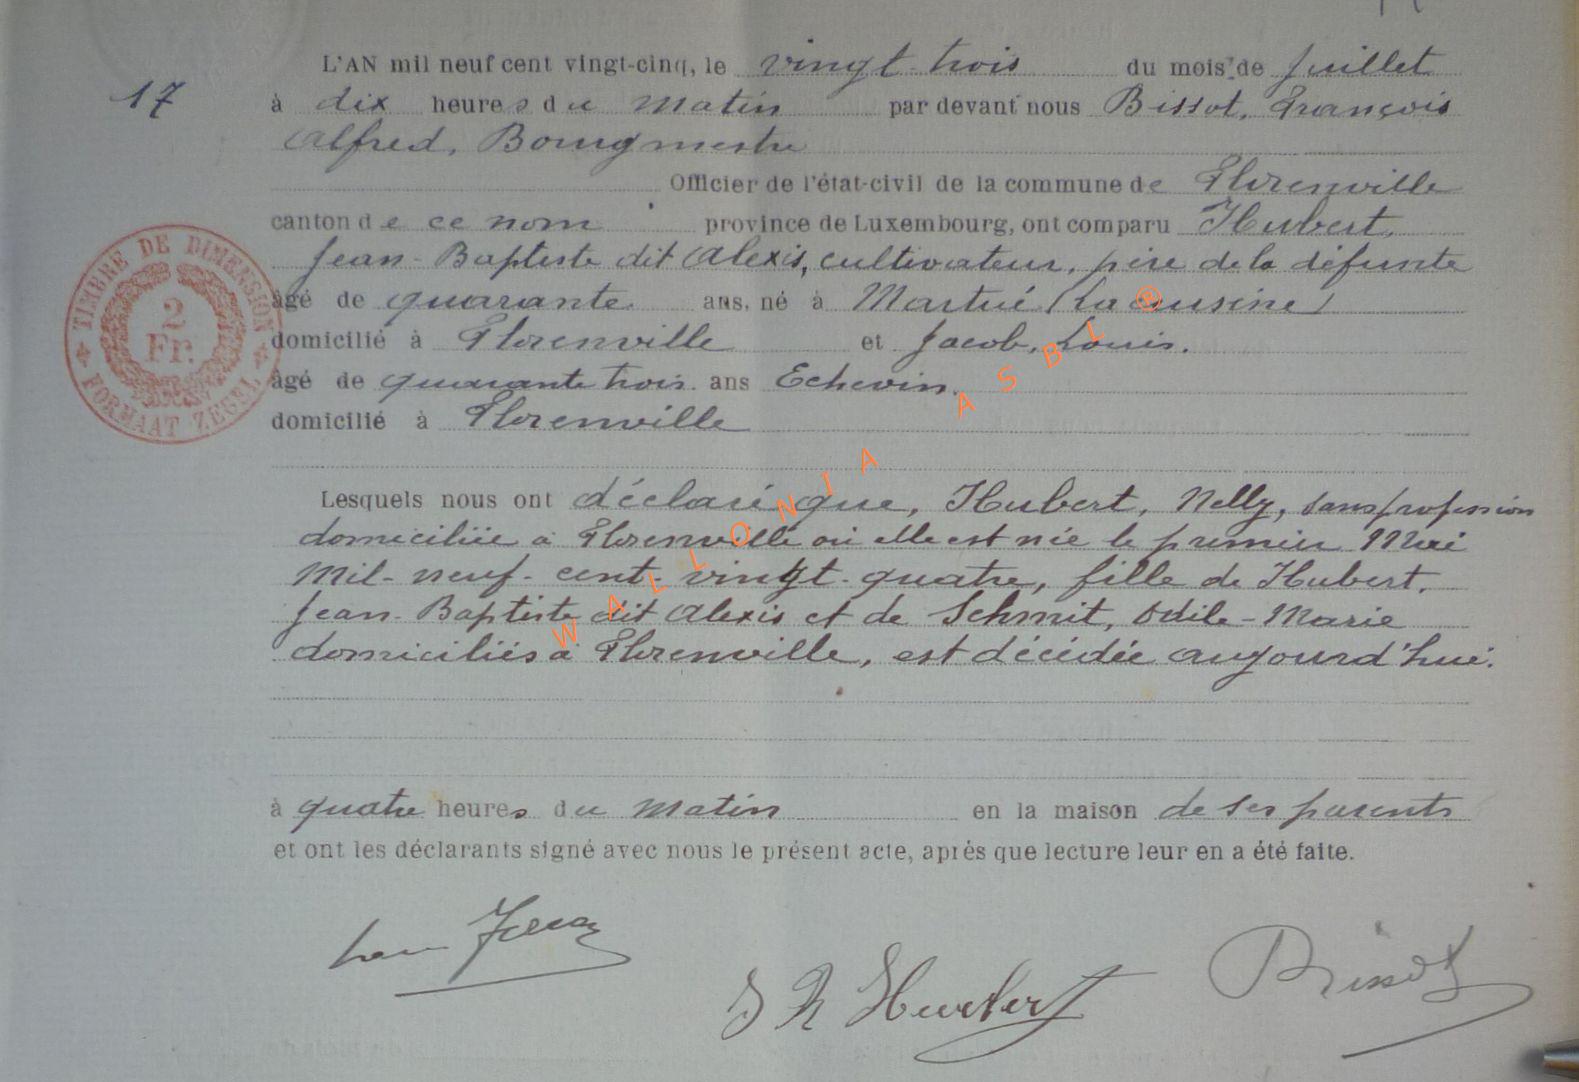 L'AN mil neuf cent vingt-cinq, le vingt-trois du mois de Juillet
17
à dix heures du Matin par devant nous Bissot, François
Alfred, Bourgmestre
Officier de l'état-civil de la commune de Florenville
canton de ce nom province de Luxembourg, ont comparu Hubert,
Jean-Baptiste dit Alexis, cultivateur, père de la défunte
TIMBRE DE DIMENSION
2
Fr.
FORMAAT ZEGEL
âgé de quarante ans, né à Martué (Lacuisine)
domicilié à Florenville et Jacob, Louis.
âgé de quarante trois ans Echevin.
domicilié à Florenville
Lesquels nous ont déclaré que, Hubert, Nelly, sans profession
domiciliée à Florenville où elle est née le premier Mai
Mil-neuf-cent-vingt-quatre, fille de Hubert,
Jean-Baptiste dit Alexis et de Schmit, Odile-Marie
domiciliés à Florenville, est décédée aujourd'hui.
WALLONIA ASBL ®
à quatre heures du Matin en la maison de ses parents
et ont les déclarants signé avec nous le présent acte, après que lecture leur en a été faite.
Hubert
Bissot